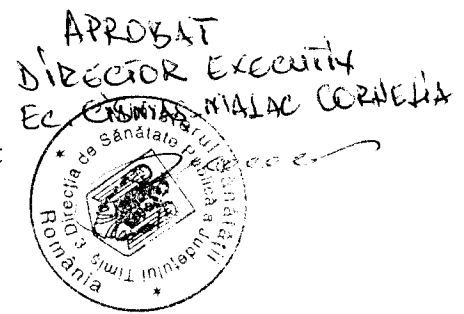 APROBAT
DIRECTOR EXECUTIV
Ec. MALAC CORNELIA
România * Ministerul Sănătății *
Direcția de Sănătate Publică a Județului Timiș 3